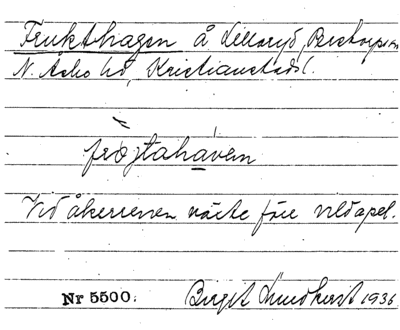 Frukthagen å Lillaryd, Perstorp sn
N. Åsbo hd, Kristianstads l.
frögtahaven
Vid åkerrenen växte före vildapel.
Nr 5500. Birgit Lindkvist 1936